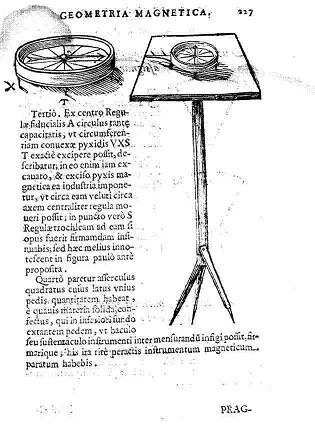 GEOMETRIA MAGNETICA. 227
X
T
Tertiò. Ex centro Regu-
læ fiducialis A circulus tantę
capacitatis, vt circumferen-
tiam conuexæ pyxidis VXS
T exactè excipere possit, de-
scribatur; in eo enim iam ex-
cauato, & exciso pyxis ma-
gnetica ea industria impone-
tur, vt circa eam veluti circa
axem centraliter regula mo-
ueri possit; in puncto verò S
Regulæ cochleam ad eam si
opus fuerit firmandam insi-
nuabis; sed hæc melius inno-
tescent in figura paulò antè
proposita.
Quartò paretur asserculus
quadratus cuius latus vnius
pedis quantitatem habeat,
è quauis materia solida con-
fectus, qui in inferiori fundo
extantem pedem, vt baculo
seu sustentaculo instrumenti inter mensurandū infigi possit, fir-
matique; his ita ritè peractis instrumentum magneticum
paratum habebis.
PRAG-